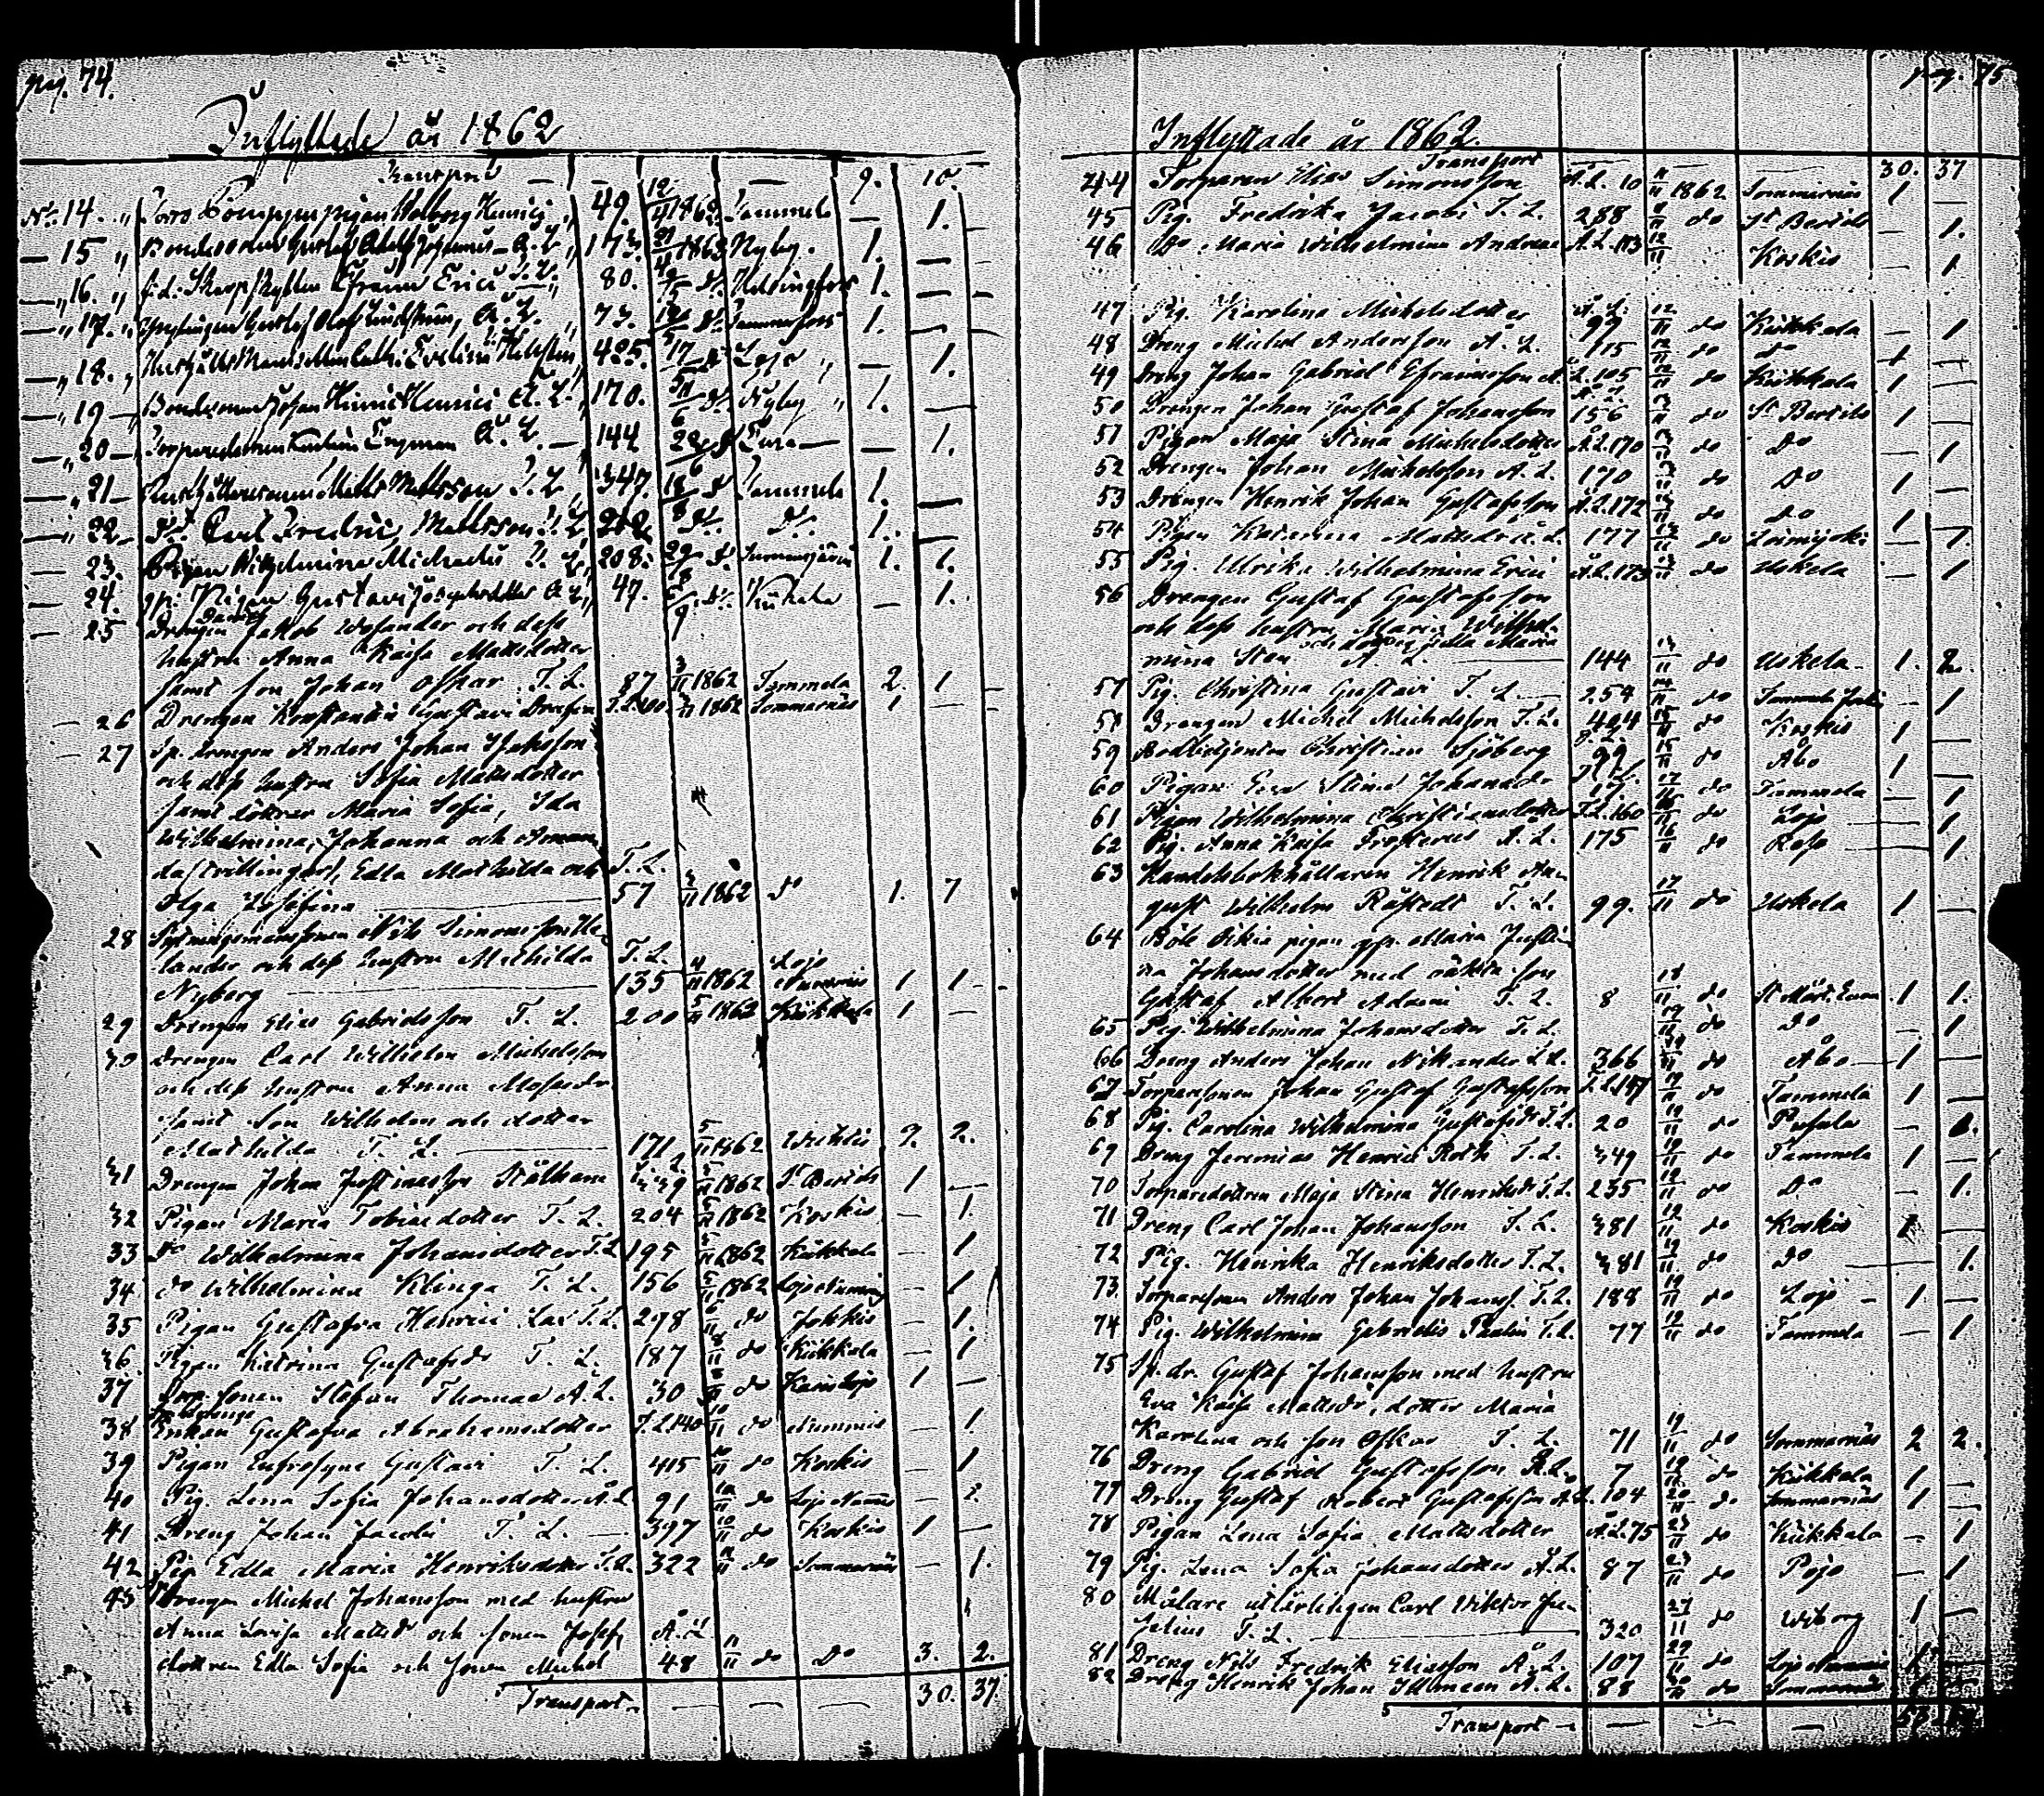 pag. 74.
Inflyttade år 1862
Transport — — 12 — 9. 10.
No. 14. 49. 1862 Tammela — 1.
15 173. 1862 Nyby. 1. —
16. Efraim Erici 80. do Helsingfors 1. —
17. Gustaf Olof Lindström, Å. L. 73. do 1. —
18. 425. 17 Lojo — 1.
19 Bondesonen Johan Henric Henrici Å. L. 170. do Nyby 1. —
20 Engman Å. L. — 144 do — 1.
21 Matts Mattsson T. L. 347. 18 do Tammela 1. —
22. Do Carl Fredric Mattsson T. L. do. 1. —
23. Pigan Wilhelmina Michaelis T. L. 208. 29 do 1. 1.
24. Pigan Gustava Josephsdotter Å. L. 47. do Kiikala — 1.
25 Drengen Jakob Wesander och dess
hustru Anna Kaisa Mattsdotter
samt son Johan Oskar T. L. 87 3/11 1862 Tammela 2. 1
26 Drengen Konstantin Gustavi T. L. 1862 Sommarnäs 1 —
27 Sp. drengen Anders Johan Isaksson
och dess hustru Sofia Mattsdotter
samt döttrar Maria Sofia, Ida
Wilhelmina, Johanna och Aman-
da (trillingar), Edla Mathilda och T. L.
Olga Josefina — 57 3/11 1862 do 1. 7
28 Nils Simonsson He-
lander och dess hustru Mathilda T. L. Lojo
Nyberg — 135 4/11 1862 Nummis 1 1.
29 Drengen Elias Gabrielsson T. L. 200 5/11 1862 Kiikkala 1 —
30 Drengen Carl Wilhelm Michelsson
och dess hustru Anna Mosesdr
samt son Wilhelm och dotter
Mathilda T. L. — 171 5/11 1862 Wichtis 2. 2.
31 Drengen Johan Justinusson Stålhane 1862 St Bertils 1 —
32 Pigan Maria Tobiasdotter T. L. 204 5/11 1862 Koskis — 1.
33 Do Wilhelmina Johansdotter T. L. 195 5/11 1862 Kiikkala — 1
34 do Wilhelmina Klinga T. L. 156 5/11 1862 Lojo Nummis — 1
35 Pigan Gustafva Henrici T. L. 278 6/11 do Jokkis — 1.
36 Pigan Katrina Gustafsdr T. L. 187 8/11 do Kiikkala — 1
37 Torp. sonen Stefan Thomae Å. L. 30 8/11 do Karislojo 1 —
38 Enkan Gustafva Abrahamsdotter T. L. 140 10/11 do Nummis — 1.
39 Pigan Eufrosyne Gustavi T. L. 415 10/11 do Koskis — 1
40 Pig. Lena Sofia Johansdotter Å. L. 91 10/11 do Lojo Nummis — 1.
41 Dreng Johan Jacobi T. L. — 397 10/11 do Koskis 1 —
42 Pig. Edla Maria Henriksdotter T. L. 322 11/11 do Sommarnäs — 1.
43 Drengen Michel Johansson med hustru
Anna Lovisa Mattsdr och sonen Josef, Å. L.
dottren Edla Sofia och sonen Michel 48 11/11 do Do 3. 2.
Transport — — — — 30. 37.
pag. 75
Inflyttade år 1862.
Transport — — — 30. 37
44 Torparen Elias Simonsson Å. L. 10 11/11 1862. Sommarnäs 1 —
45 Pig. Fredrika Jacobi T. L. 288 do St Bertils — 1.
46 Do Maria Wilhelmina Andreae Å. L. 113 12/11 Koskis — 1
47 Pig. Karolina Michelsdotter Å. L. 99 12/11 do Kiikkala — 1
48 Dreng Michel Andersson Å. L. 115 12/11 do do 1
49 Dreng Johan Gabriel Efraimsson Å. L. 105 12/11 do Kiikkala 1
50 Drengen Johan Gustaf Johansson Å. L. 156 do St Bertils 1
51 Pigan Maja Stina Michelsdotter Å. L. 170 do Do — 1
52 Drengen Johan Michelsson Å. L. 170 do Do 1
53 Drengen Henrik Johan Gustafsson Å. L. 172 do do 1
54 Pigan Katarina Mattsdr Å. L. 177 do Loimijoki — 1
55 Pig. Ulrika Wilhelmina Erici Å. L. 173 do Uskela — 1
56 Drengen Gustaf Gustafsson
och dess hustru Maria Wilhel-
mina Sten och dotter Edla Maria Å. L. — 144 13/11 do Uskela 1. 2.
57 Pig. Christina Gustavi T. L. — 254 14/11 do — 1
58 Drengen Michel Michelsson T. L. 424 15/11 do Koskis 1
59 Bodbetjenten Christian Sjöberg T. L. 99 15/11 do Åbo 1 —
60 Pigan Eva Stina Johansdr T. L. 17 17/11 do Tammela — 1
61 Pigan Wilhelmina Christiansdotter T. L. 160 16/11 do Lojo — 1
62 Pig. Anna Kaisa Frosterus Å. L. 175 16/11 do — 1
63 Handelsbokhållaren Henrik Au-
gust Wilhelm Råstedt T. L. 99. 17/11 do Uskela 1 —
64 Böle pigan Maria Justi-
na Johansdotter med oäkta son
Gustaf Albert Adami T. L. 8 18/11 do 1 1.
65 Pig. Wilhelmina Johansdotter T. L. 19/11 do Do — 1
66 Dreng Anders Johan Nikander T. L. 366 do Åbo 1 —
67 Torparesonen Johan Gustaf Gustafsson T. L. 19/11 do Tammela 1 —
68 Pig. Carolina Wilhelmina Gustafsdr T. L. 20 19/11 do Pusula — 1.
69 Dreng Jeremias Henric Roth T. L. 349 19/11 do Tammela 1 —
70 Torparedottren Maja Stina Henriksdr T. L. 235 19/11 do Do — 1.
71 Dreng Carl Johan Johansson T. L. 381 19/11 do Koskis 1 —
72 Pig. Henrika Henriksdotter T. L. 381 19/11 do Do — 1.
73. Torparesonen Anders Johan Johanss. T. L. 188 19/11 do Lojo 1 —
74 Pig. Wilhelmina Gabrielis Paulin T. L. 77 19/11 do Tammela — 1
75 Sp. dr. Gustaf Johansson med hustru
Eva Kaisa Mattsdr, dotter Maria
Karolina och son Oskar T. L. 71 19/11 do Sommarnäs 2 2.
76 Dreng Gabriel Gustafsson Å. L. 7 19/11 do Kiikkala 1 —
77 Dreng Gustaf Robert Gustafsson Å. L. 104 20/11 do Sommarnäs 1 —
78 Pigan Lena Sofia Mattsdotter Å. L. 75 do Kiikkala — 1
79 Pig. Lena Sofia Johansdotter Å. L. 87 do Pojo — 1
80 Målare utlärlingen Carl Viktor Ju-
selius T. L. — 320 27/11 do Wiborg 1 —
81 Dreng Nils Fredrik Eliasson Å. L. 107 29/11 do Lojo Nummis 1
82 Dreng Henrik Johan Illman Å. L. 88 do Sommarnäs
Transport — — — —